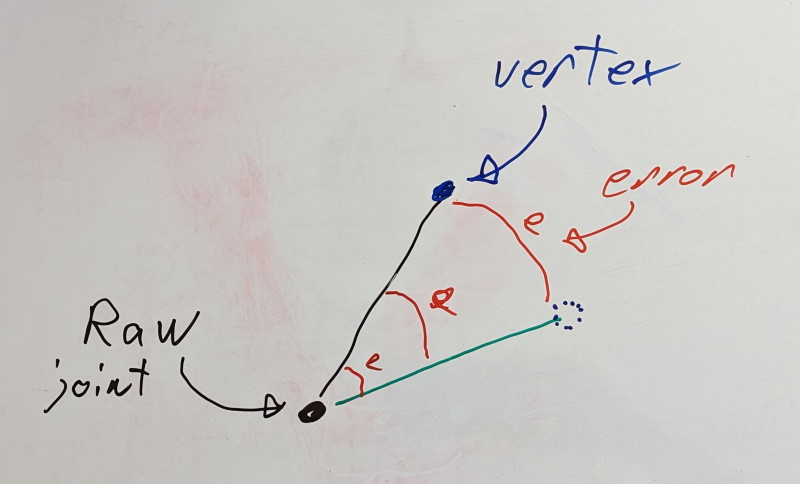 vertex
error
e
e
e
Raw
joint